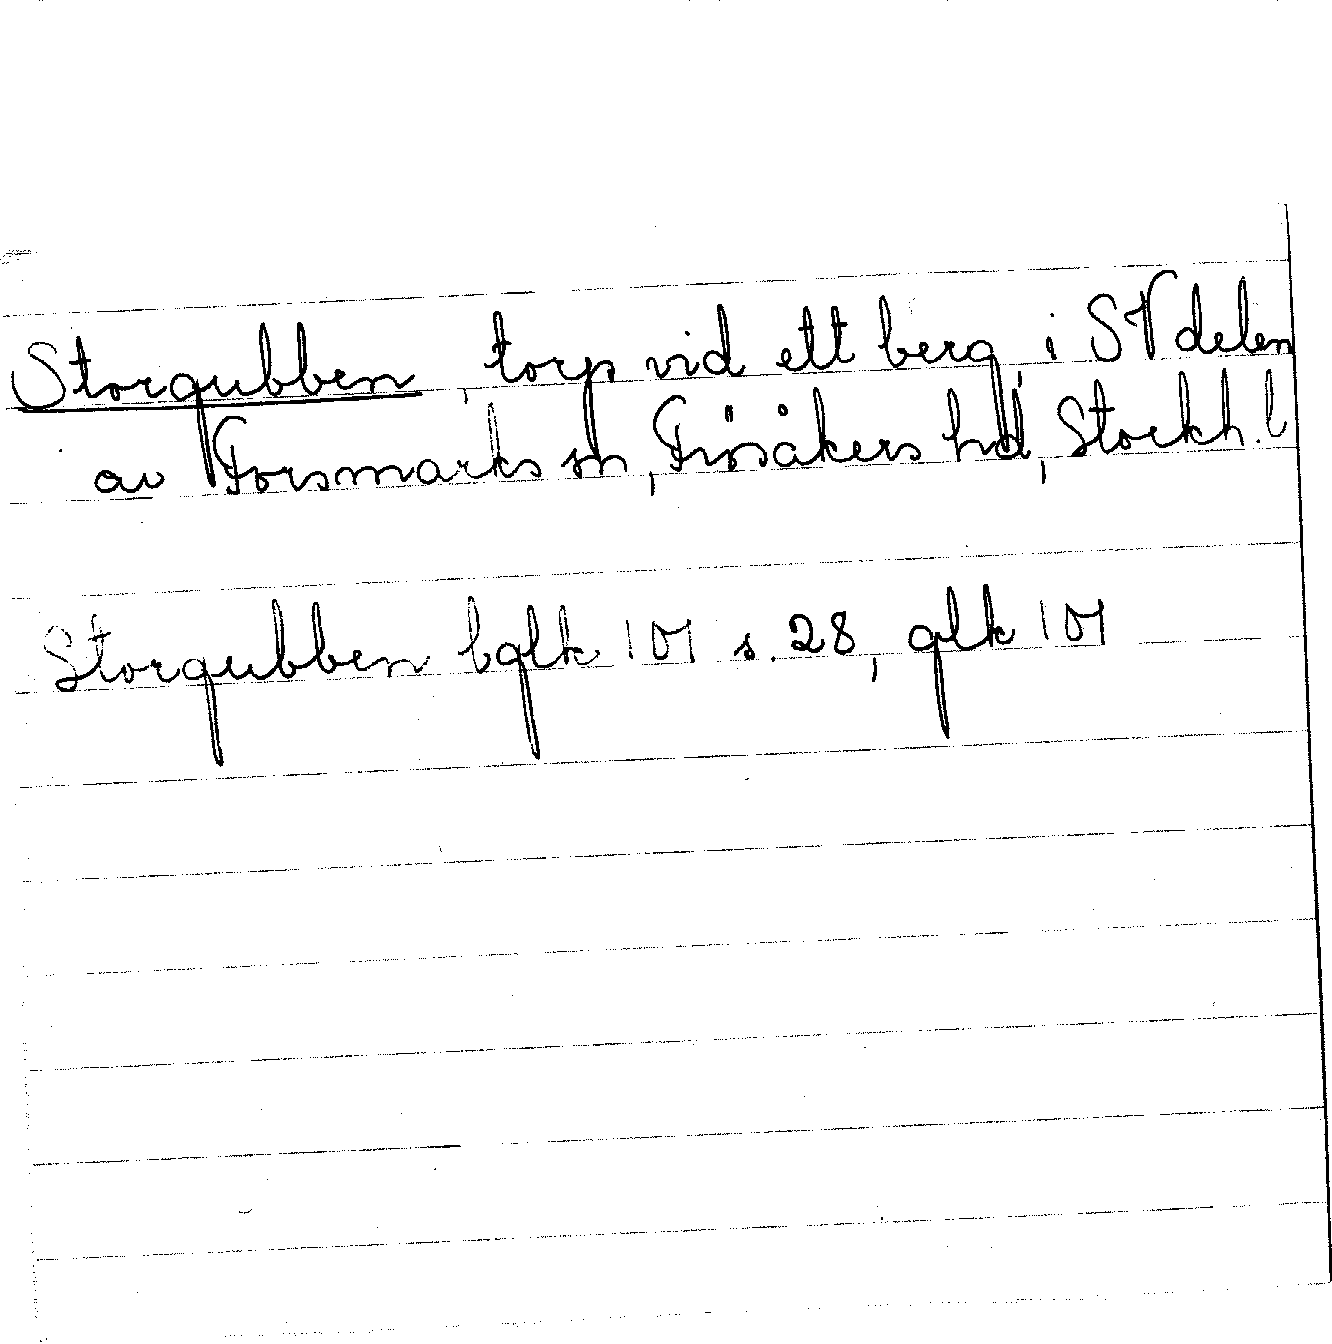 Storgubben, torp vid ett berg, i SV delen
av Forsmarks sn, Frösåkers hd, Stockh. l
Storgubben bglk 101 s. 28, glk 101